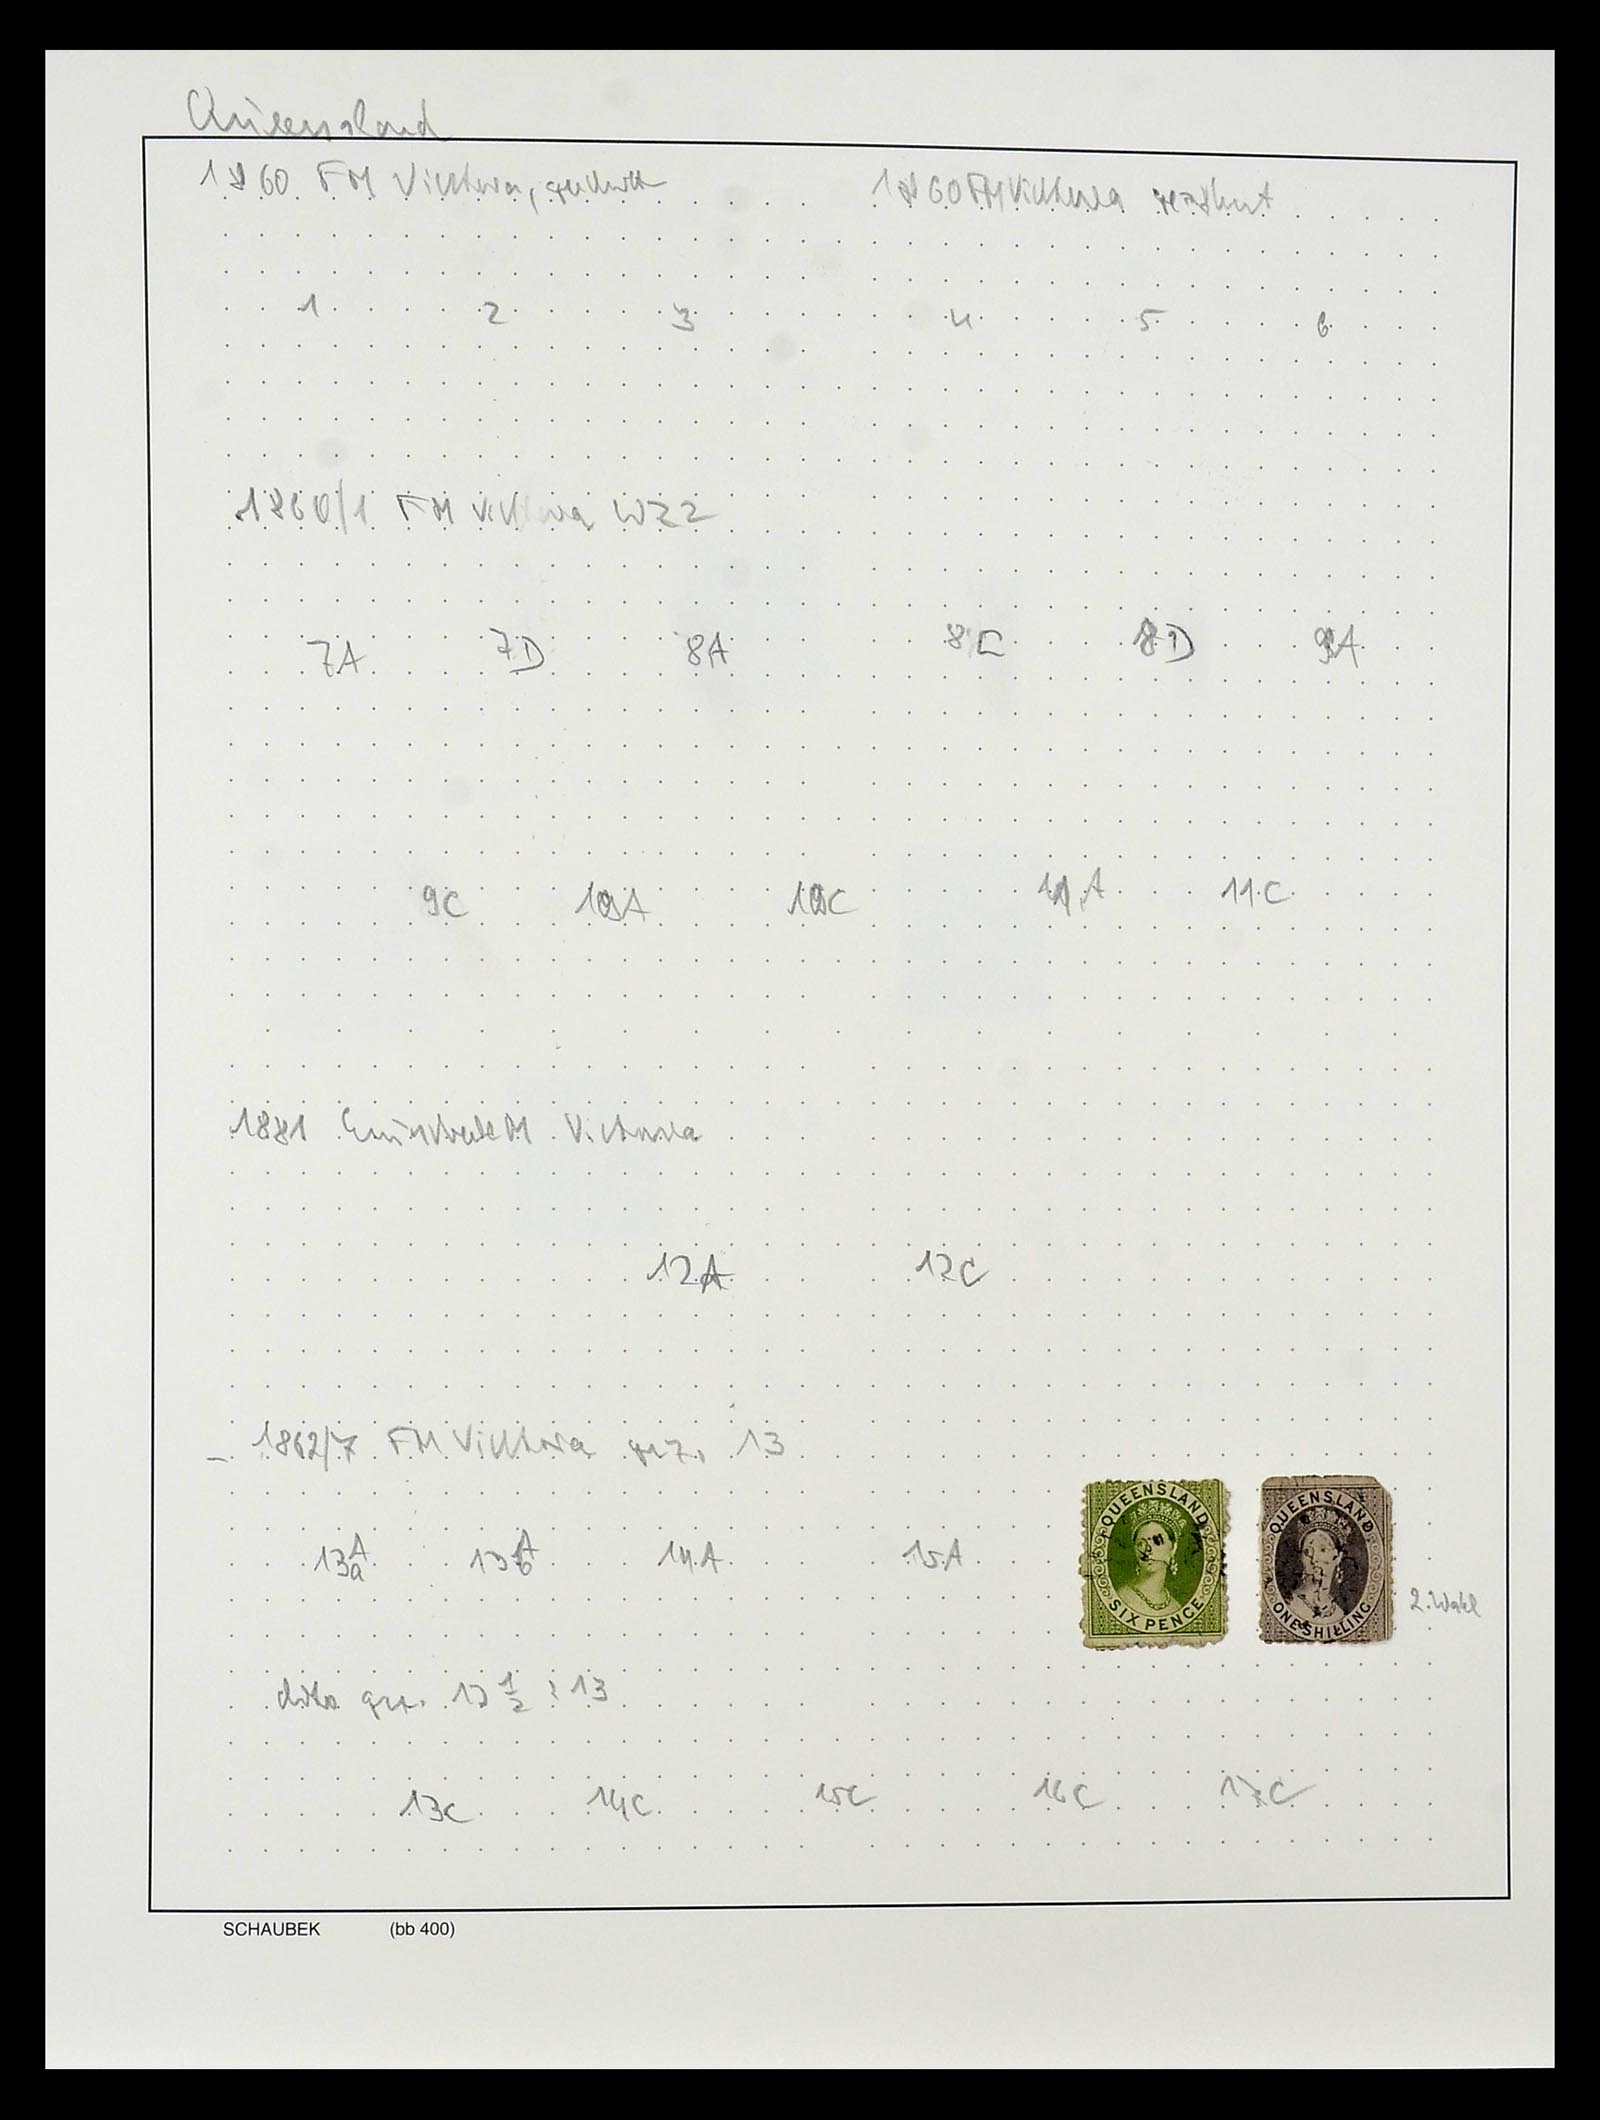 Queensland
1860 FM Victoria,
1860 FM Victoria gezähnt
1 2 3 4 5 6
1860/1 FM Victoria WZ 2
7A 7D 8A 8C 8D 9A
9C 10A 10C 11A 11C
1881 Victoria
12A 12C
1862/7 FM Victoria gez. 13
QUEENSLAND
SIX PENCE
QUEENSLAND
ONE SHILLING
13Aa 13Ab 14A 15A
2. Wahl
dito gez. 12 1/2 : 13
13C 14C 15C 16C 17C
SCHAUBEK (bb 400)